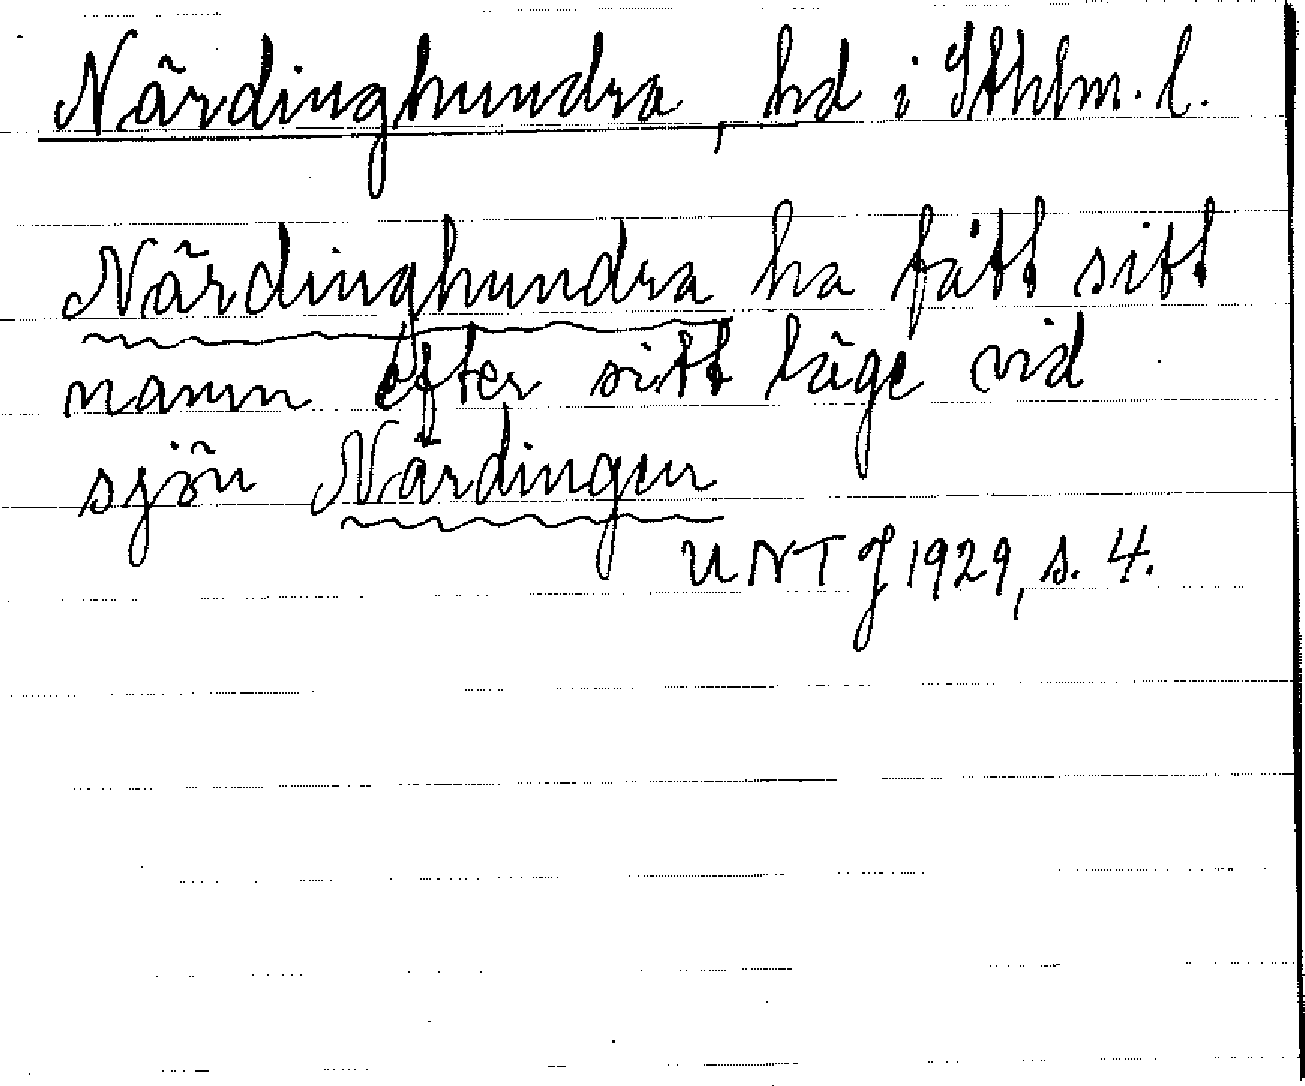 Närdinghundra, hd i Sthlm. l.
Närdinghundra ha fått sitt
namn efter sitt läge vid
sjön Närdingen
UNT J 1929, s. 4.